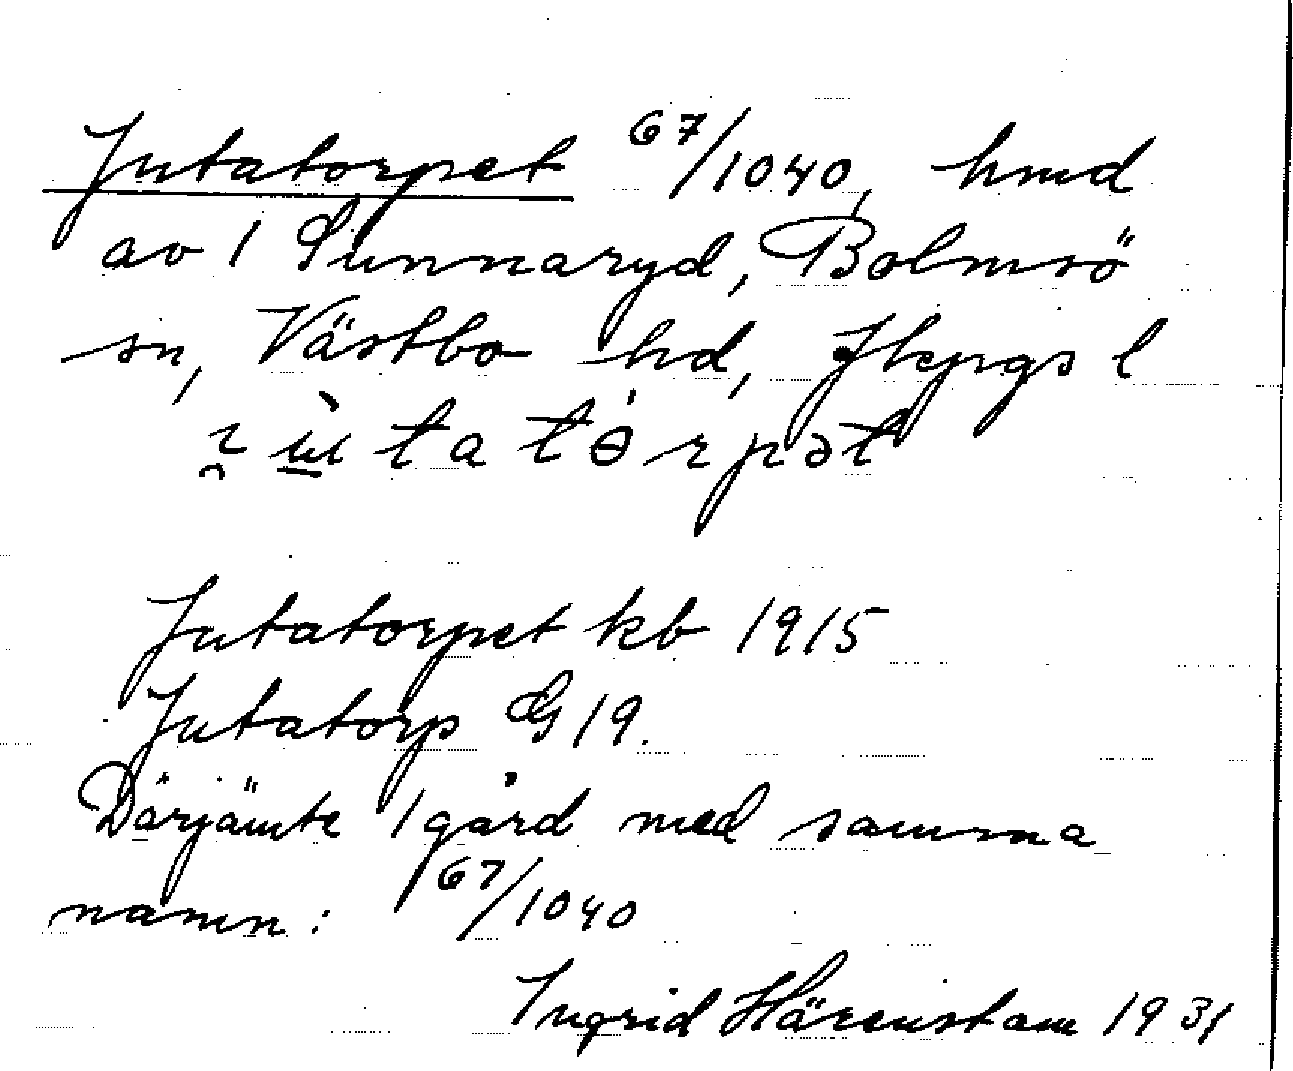 Jutatorpet 67/1040, hmd
av 1 Sunnaryd, Bolmsö
sn, Västbo hd, Jkpgs l
Jutatorpet kb 1915
Jutatorp G 19.
Därjämte 1 gård med samma
namn: 67/1040
Ingrid Härenstam 1931